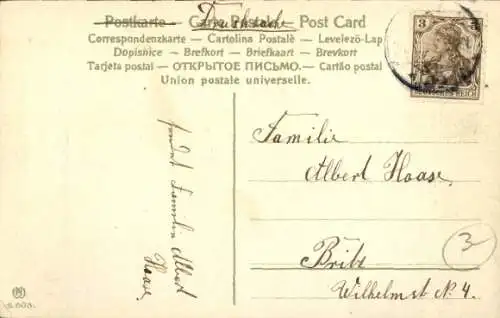 Postkarte — Carte Postale — Post Card
Drucksache
Correspondenzkarte — Cartolina Postalè — Levelező-Lap
Dopisnice — Brefkort — Briefkaart — Brevkort
Tarjeta postal — ОТКРЫТОЕ ПИСЬМО. — Cartão postal
Union postale universelle.
3 3
DEUTSCHES REICH
Familie
Albert Haase
Britz
Wilhelmst N. 4.
3
Familie Albert
Haase